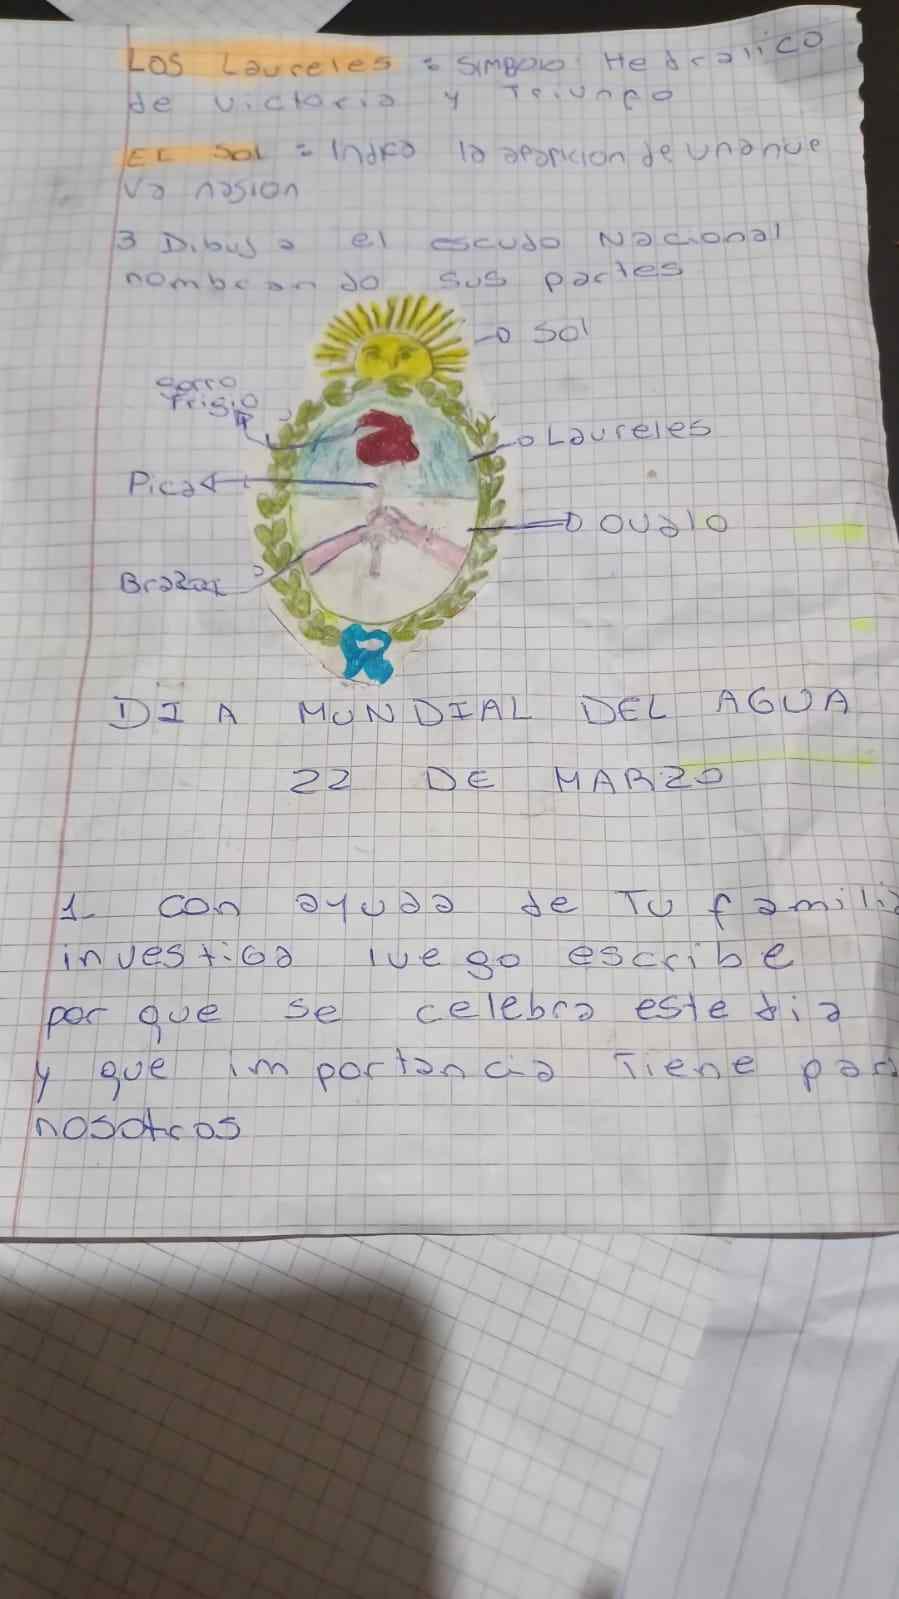 Los Laureles = SIMBOLO Hedralico
de victoria y Triunfo
EL SOL = Indica la aparicion de una nue
va nasion
3 Dibuja el escudo Nacional
nombrando sus partes
Sol
Gorro
Frigio
Laureles
Pica
Ovalo
Brazos
DIA MUNDIAL DEL AGUA
22 DE MARZO
1- con ayuda de Tu familia
investiga luego escribe
por que se celebra este dia
y que importancia Tiene para
nosotros